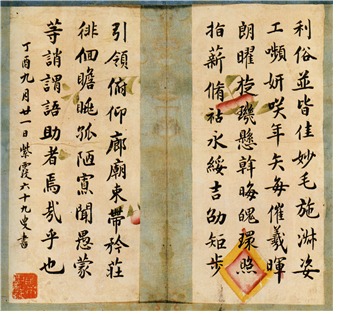 利俗並皆佳妙毛施淑姿
工嚬妍咲年矢每催羲暉
朗曜旋璣懸斡晦魄環照
指薪脩祜永綏吉劭矩步
引領俯仰廊廟束帶矜莊
徘徊瞻眺孤陋寡聞愚蒙
等誚謂語助者焉哉乎也
丁酉九月廿一日紫霞六十九叟書